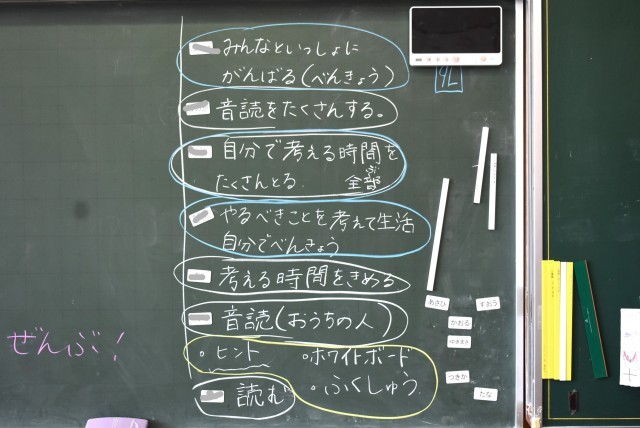 みんなといっしょに
がんばる(べんきょう)
音読をたくさんする。
自分で考える時間を
たくさんとる 全部
ぶ
やるべきことを考えて生活
自分でべんきょう
考える時間をきめる
音読(おうちの人)
・ヒント ・ホワイトボード
・ふくしゅう
読む
ぜんぶ!
あさひ
すおう
かおる
ゆきまさ
つきか
たな